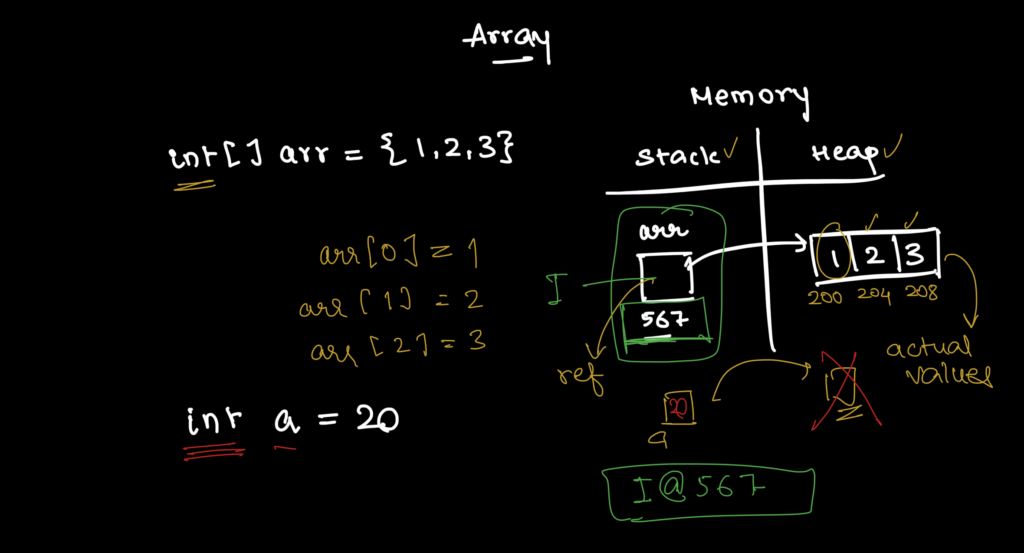 Array
int[] arr = {1,2,3}
arr[0] = 1
arr[1] = 2
arr[2] = 3
int a = 20
Memory
Stack✓ Heap✓
arr
I
567
ref
1 2 3
200 204 208
actual
values
20
a
I@567